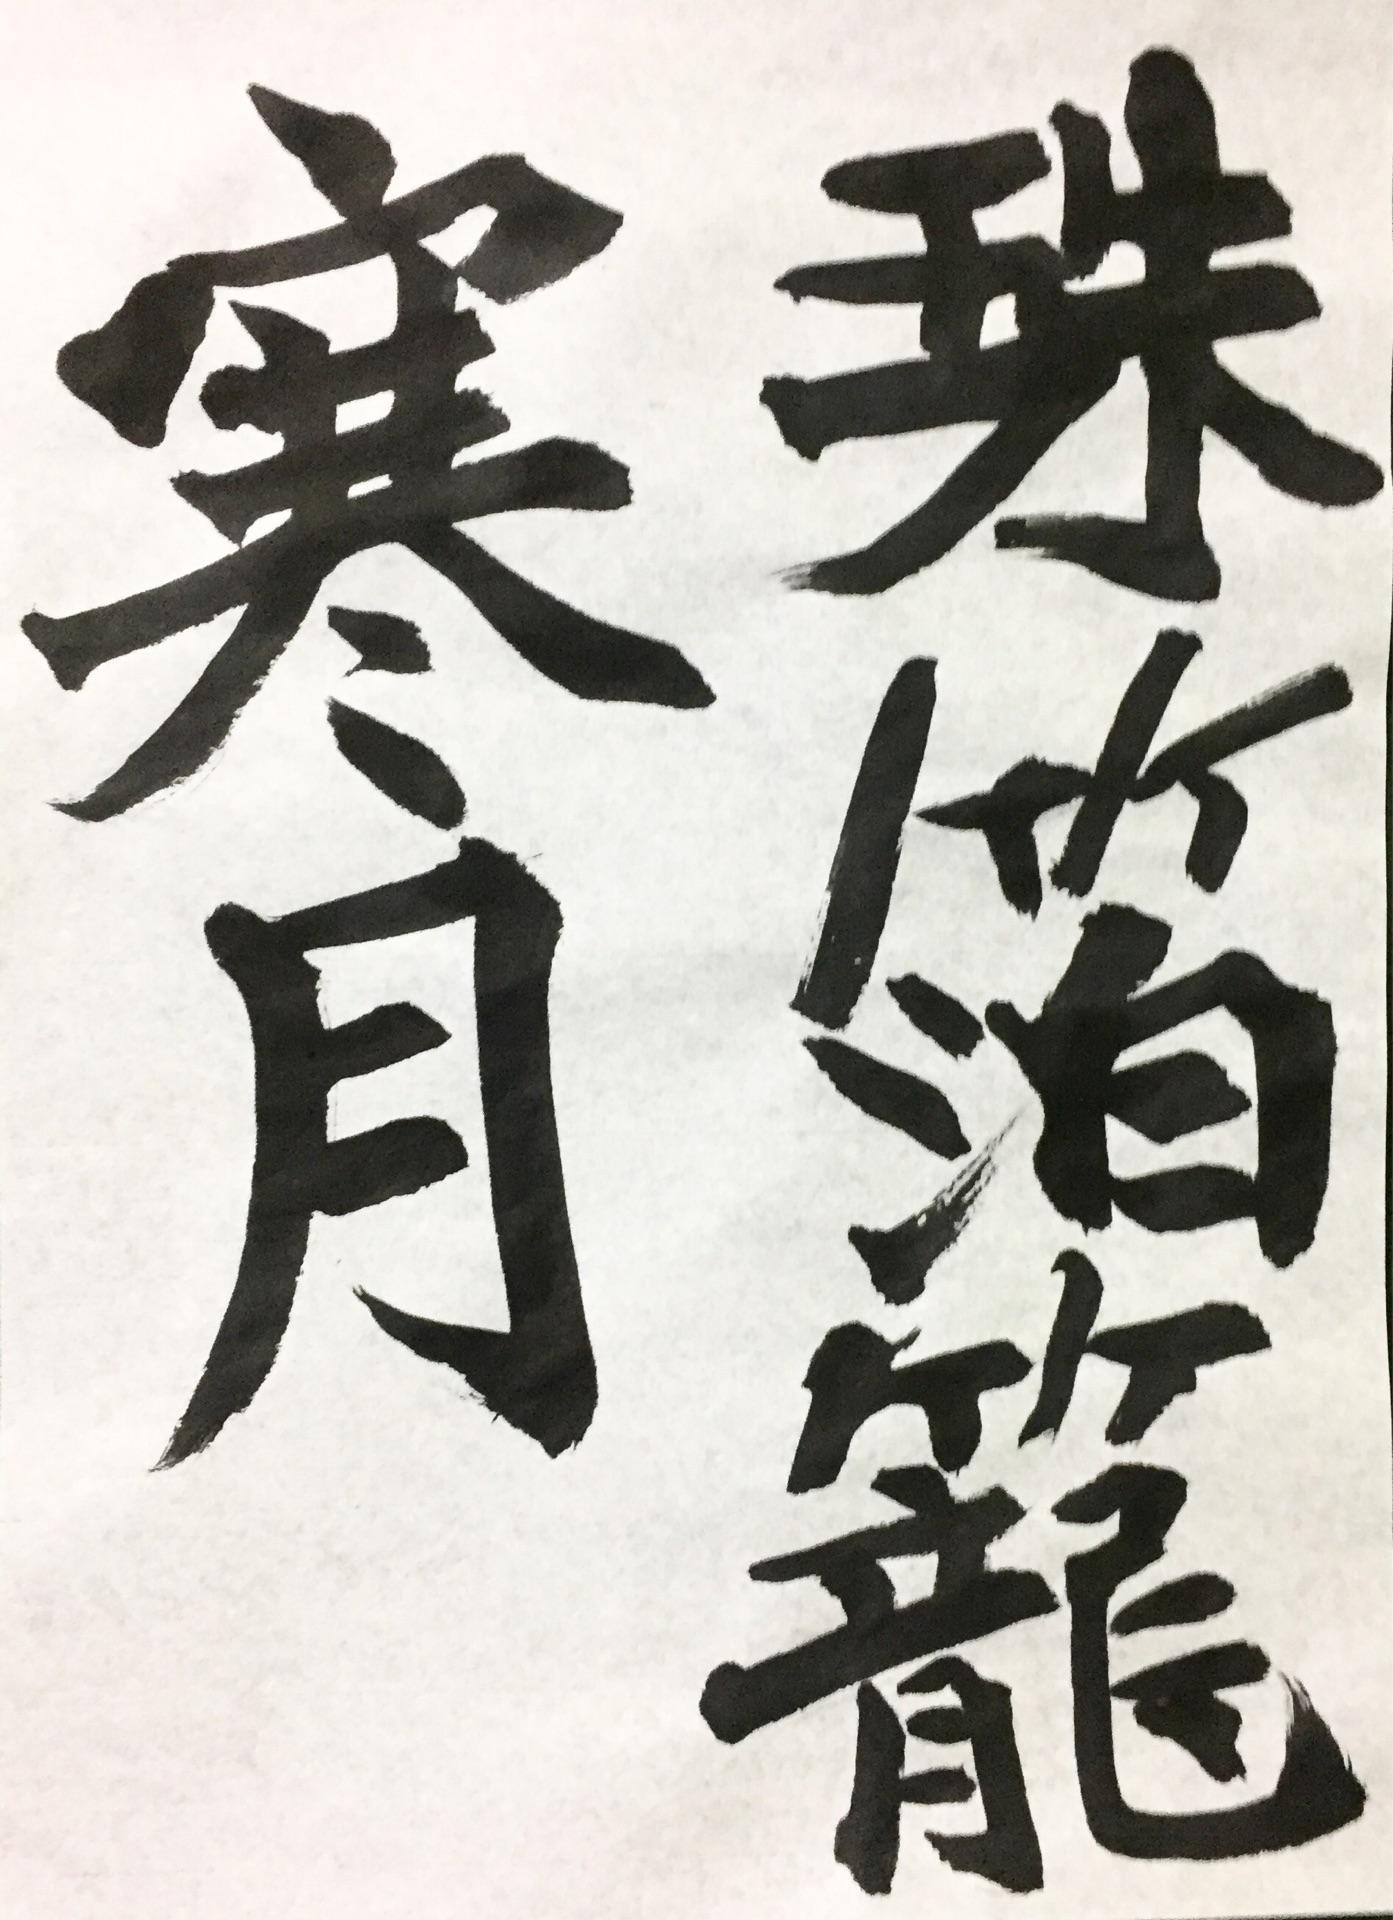 珠箔籠
寒月